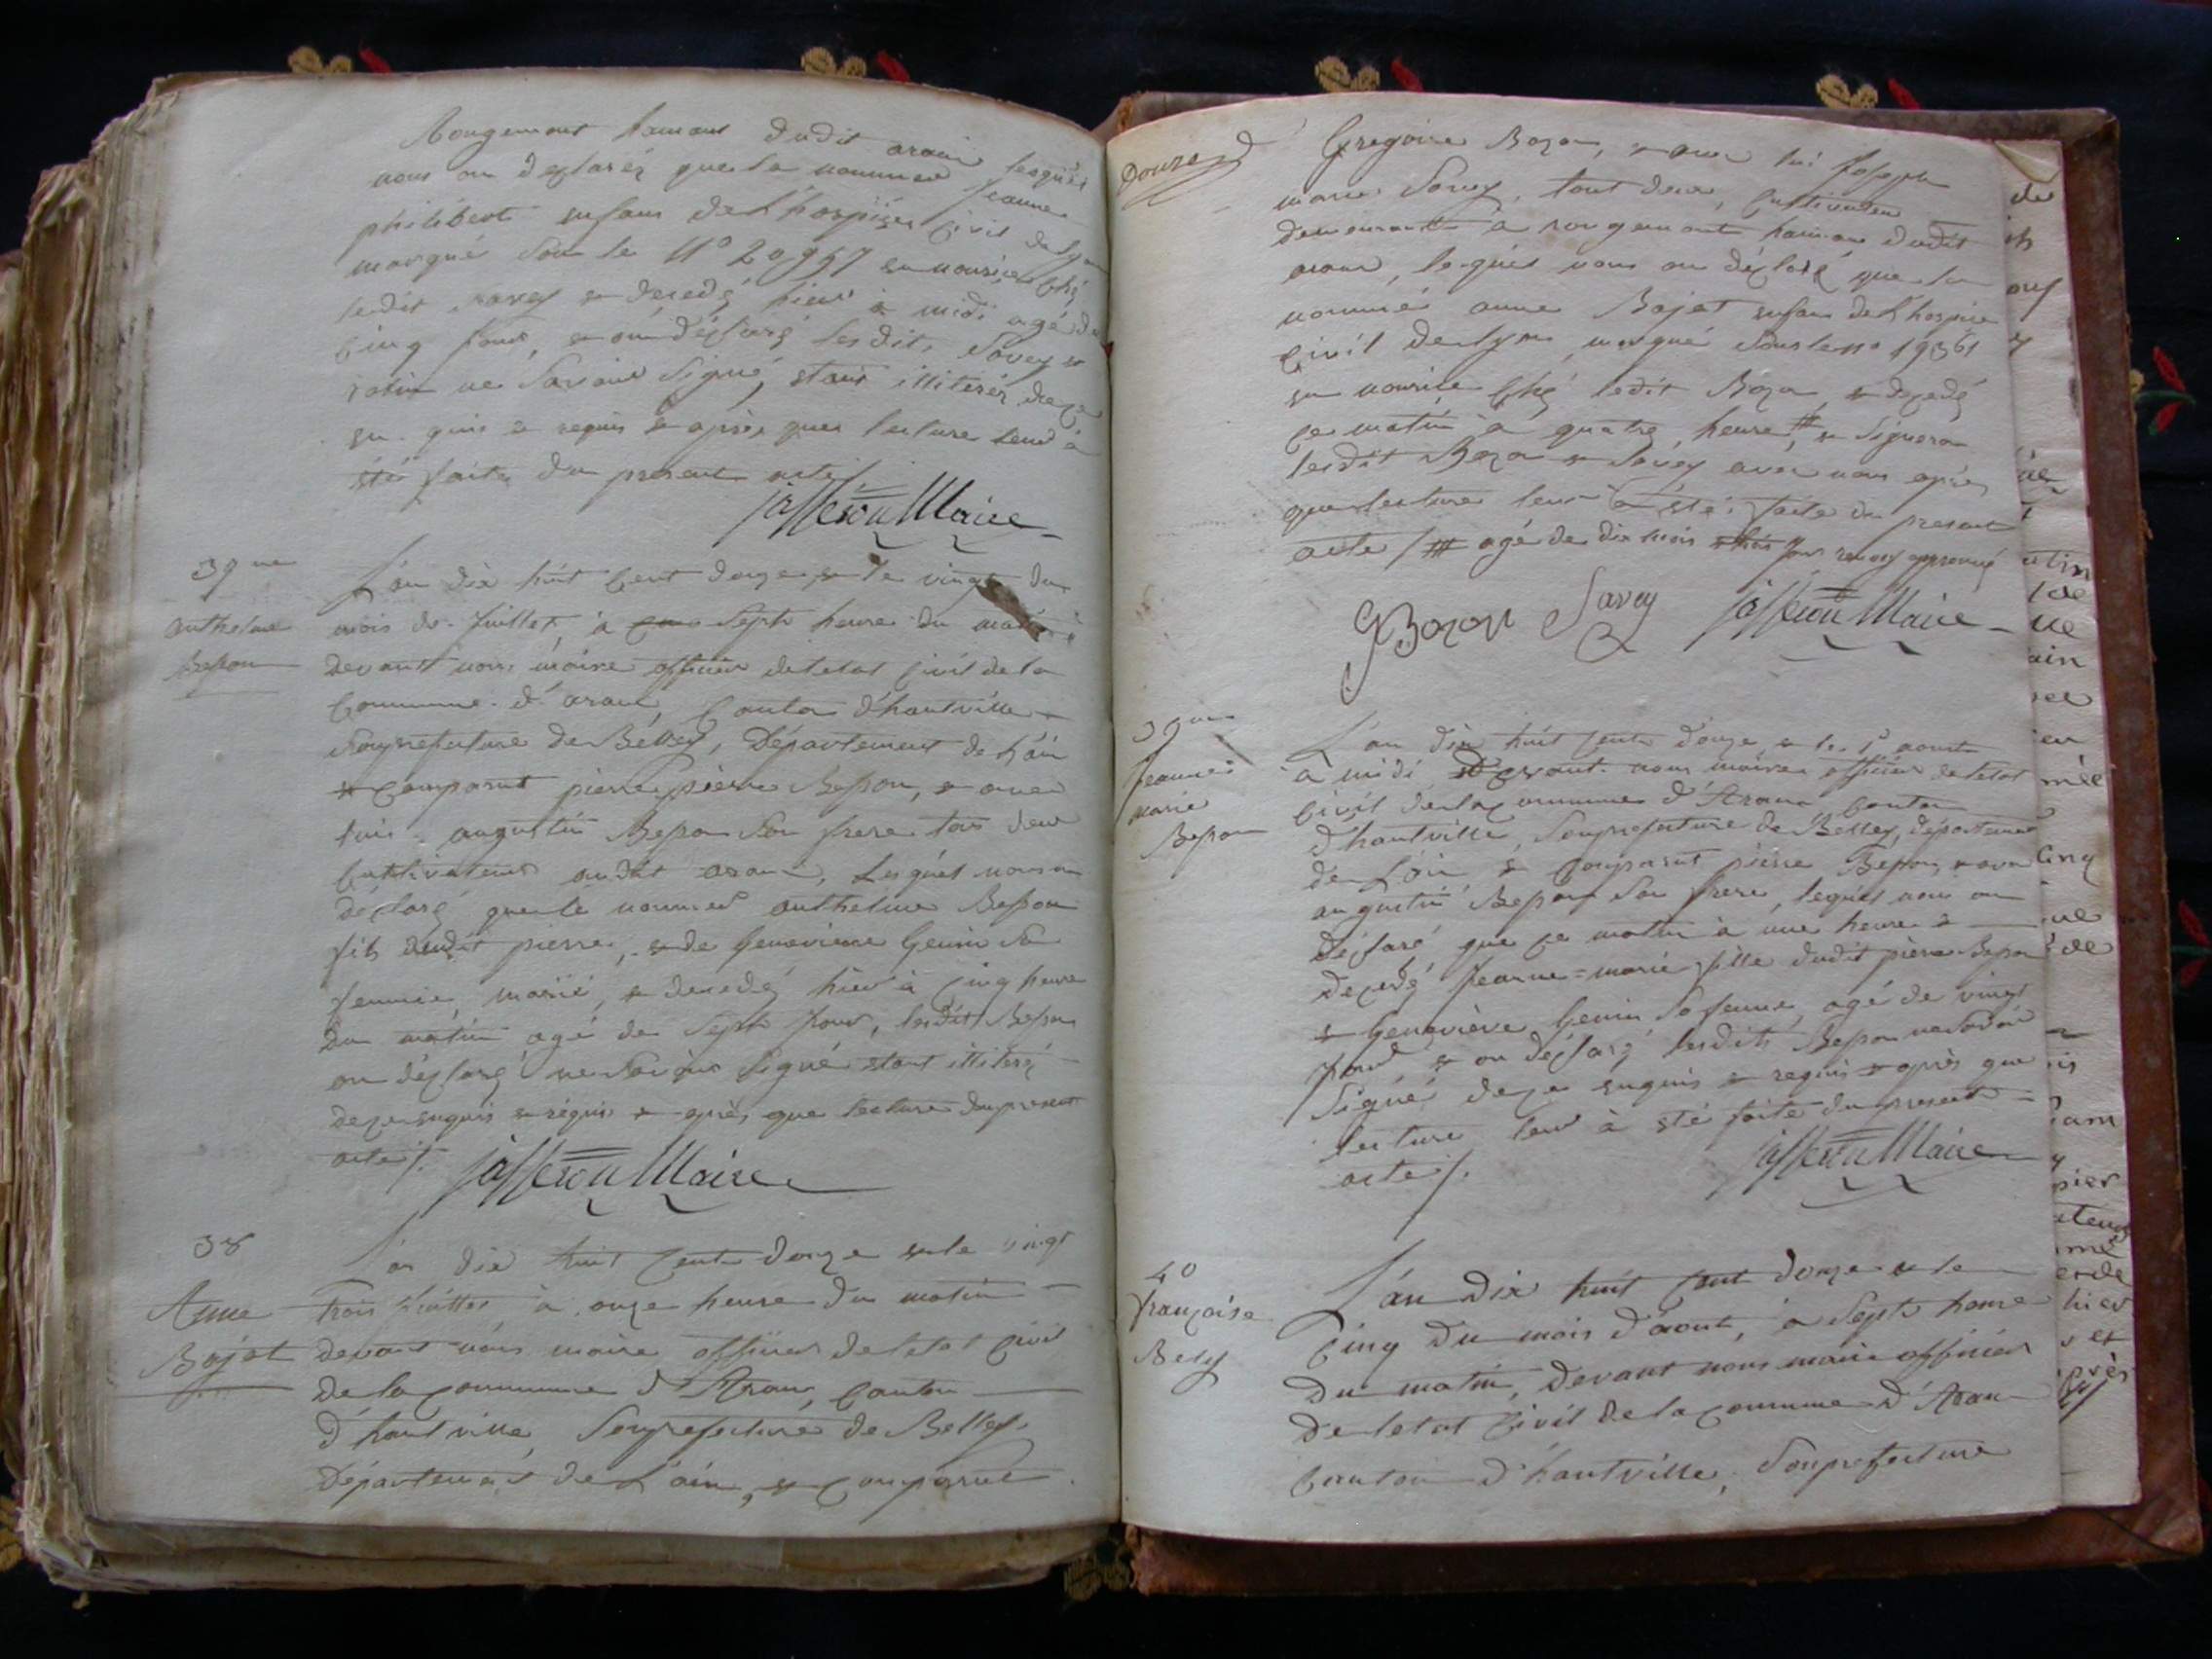 Rougemont hamaux dudit aranc lesquels
nous on déclaréz que la nommée Jeanne
philibert enfans de L'hospice Civil de lyon
marqué sous le N° 20957 en nourice Chéz
ledit savey &
Cinq Jours, & on déclaré lesdits Savey &
ne savoir signé, étant illiteréz de ce
en quis & requis & après que lecture leur à
été faite du present acte
Jasseron Maire
39me
anthelme
Besson
L'an dix huit Cent douze & le vingt du
mois de Juillet, à sept heure du matin
devant nous maire officier de letat Civil de la
Commune d'aranc, Canton d'hautville
Souprefecture de Belley, Département de L'ain
& Comparut pierre pierre Besson, & avec
lui augustin Besson Son frere tous deux
Cultivateurs audit aranc, Lesquels nous on
déclaré que le nommé anthelme Besson
fils dudit pierre, & de Genevieve Genin Sa
femme, marié, & decedé hier à Cinq heure
Du matin agé de Sept Jours, lesdit Besson
on déclaré ne Savoir Signé étant illiteré
de ce enquis & réquis & après que lecture du present
acte /.
Jasseron Maire
38
Anne
Bojat
L'an dix huit Cent douze & le vingt
trois Juillet à onze heure du matin
devant nous maire officier de letat Civil
de la Commune d'Aranc, Canton
d'hautville, Souprefecture de Belley
Département de L'ain, & Comparut
Douze
Gregoire Bozon, & avec lui Joseph
marie Savey, tout deux, Cultivateur
demeurants à rougemont hamaux dudit
aranc, lesquels nous on déclaré que la
nommée anne Bojat enfans de L'hospice
Civil de lyon marqué Sous le no 19361
en nourice Chéz ledit Bozon & decedé
ce matin à quatre heure # & Signeron
lesdit Bozon & Savey avec nous après
que lecture leur à été faite du present
acte / # agé de dix mois renvoy approuvé
GBozon Savey Jasseron Maire
39me
Jeanne
marie
Besson
L'an dix huit Cent douze & le 1er aoust
à midi devant nous maire officier de letat
Civil de la Commune d'Aranc Canton
d'hautville, Souprefecture de Belley, département
de L'ain & Comparut pierre Besson, & avec
augustin Besson Son frere, lequels nous on
déclaré, que ce matin à une heure &
decedé Jeanne=marie fille dudit pierre Besson
& Geneviève Genin Sa femme, agé de vingt
Jours, & on déclaré lesdits Besson ne Savoir
Signés de ce enquis & requis & après que
lecture leur à été faite du present
acte /.
Jasseron Maire
40
françoise
Bely
L'an Dix huit Cent douze & le
Cinq Du mois d'aout, à Sept heure
Du matin, Devant nous maire officier
De letat Civil de la Commune D'Aranc
Canton D'hautville, Souprefecture